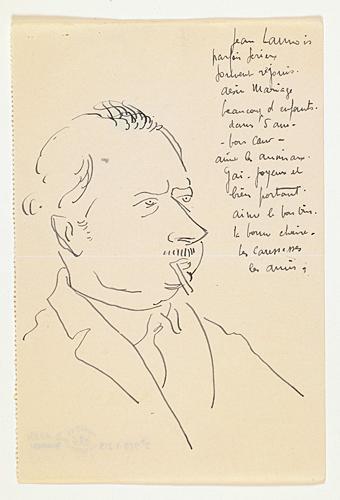 Jean Launois
parfois sérieux
souvent réjoui.
désir Mariage
beaucoup d'enfants.
dans 5 ans -
- bon cœur -
aime les animaux.
Gai - joyeux et
bien portant.
aime le bon vin.
la bonne chaire.
les caresses
les amies